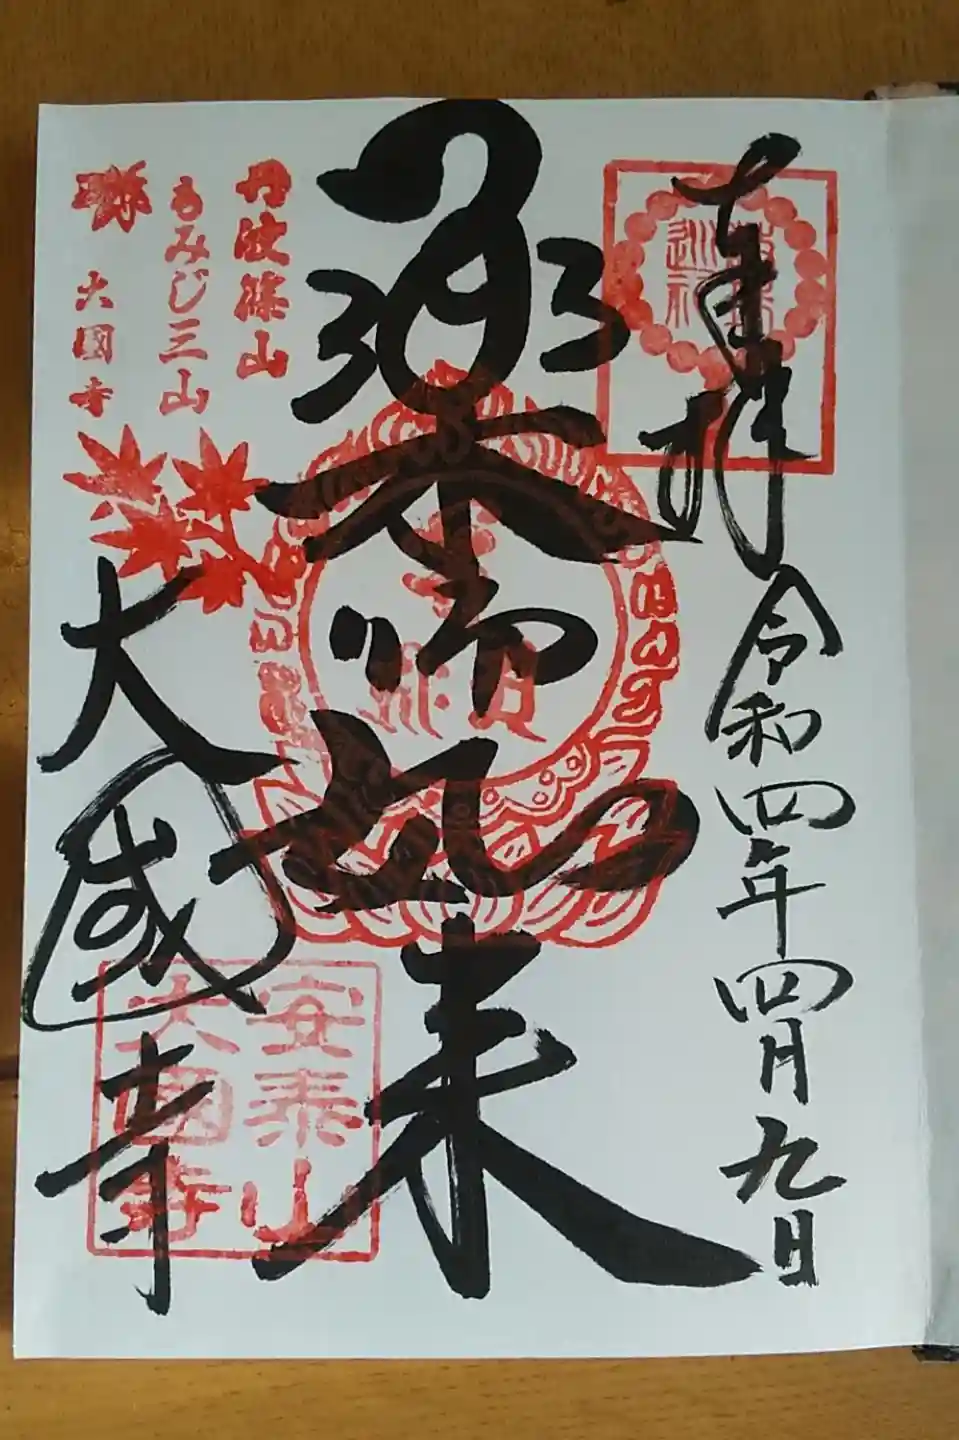 奉拝
令和四年四月九日
薬師如来
丹波篠山
もみじ三山
大國寺
大國寺
安泰山
大國寺